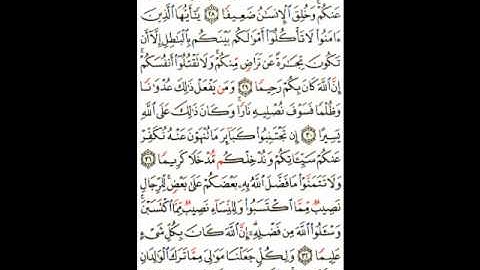 عَنكُمْ ۚ وَخُلِقَ الْإِنسَانُ ضَعِيفًا ﴿٢٨﴾ يَا أَيُّهَا الَّذِينَ
ءَامَنُوا لَا تَأْكُلُوا أَمْوَالَكُم بَيْنَكُم بِالْبَاطِلِ إِلَّا أَن
تَكُونَ تِجَارَةً عَن تَرَاضٍ مِّنكُمْ ۚ وَلَا تَقْتُلُوا أَنفُسَكُمْ ۚ
إِنَّ اللَّهَ كَانَ بِكُمْ رَحِيمًا ﴿٢٩﴾ وَمَن يَفْعَلْ ذَٰلِكَ عُدْوَانًا
وَظُلْمًا فَسَوْفَ نُصْلِيهِ نَارًا ۚ وَكَانَ ذَٰلِكَ عَلَى اللَّهِ
يَسِيرًا ﴿٣٠﴾ إِن تَجْتَنِبُوا كَبَائِرَ مَا تُنْهَوْنَ عَنْهُ نُكَفِّرْ
عَنكُمْ سَيِّئَاتِكُمْ وَنُدْخِلْكُم مُّدْخَلًا كَرِيمًا ﴿٣١﴾
وَلَا تَتَمَنَّوْا مَا فَضَّلَ اللَّهُ بِهِ بَعْضَكُمْ عَلَىٰ بَعْضٍ ۚ لِّلرِّجَالِ
نَصِيبٌ مِّمَّا اكْتَسَبُوا ۖ وَلِلنِّسَاءِ نَصِيبٌ مِّمَّا اكْتَسَبْنَ ۚ
وَسْئَلُوا اللَّهَ مِن فَضْلِهِ ۗ إِنَّ اللَّهَ كَانَ بِكُلِّ شَيْءٍ
عَلِيمًا ﴿٣٢﴾ وَلِكُلٍّ جَعَلْنَا مَوَالِيَ مِمَّا تَرَكَ الْوَالِدَانِ